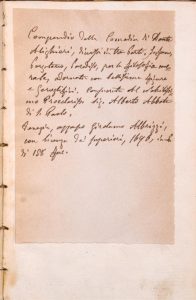 Compendio della Comedia di Dante
Alighieri, divisa in tre Parti, Inferno,
Purgatorio, Paradiso, per la filosofia mo-
rale, Dornata con bellissime figure
e Geroglifici. Consacrata Al nobilissi-
mo Preclarissi. Sig. Alberto Abbate
di S. Paolo.
Venezia, appresso Girolamo Albrizzi,
con licenza de' superiori, 1696, in 8
di 158